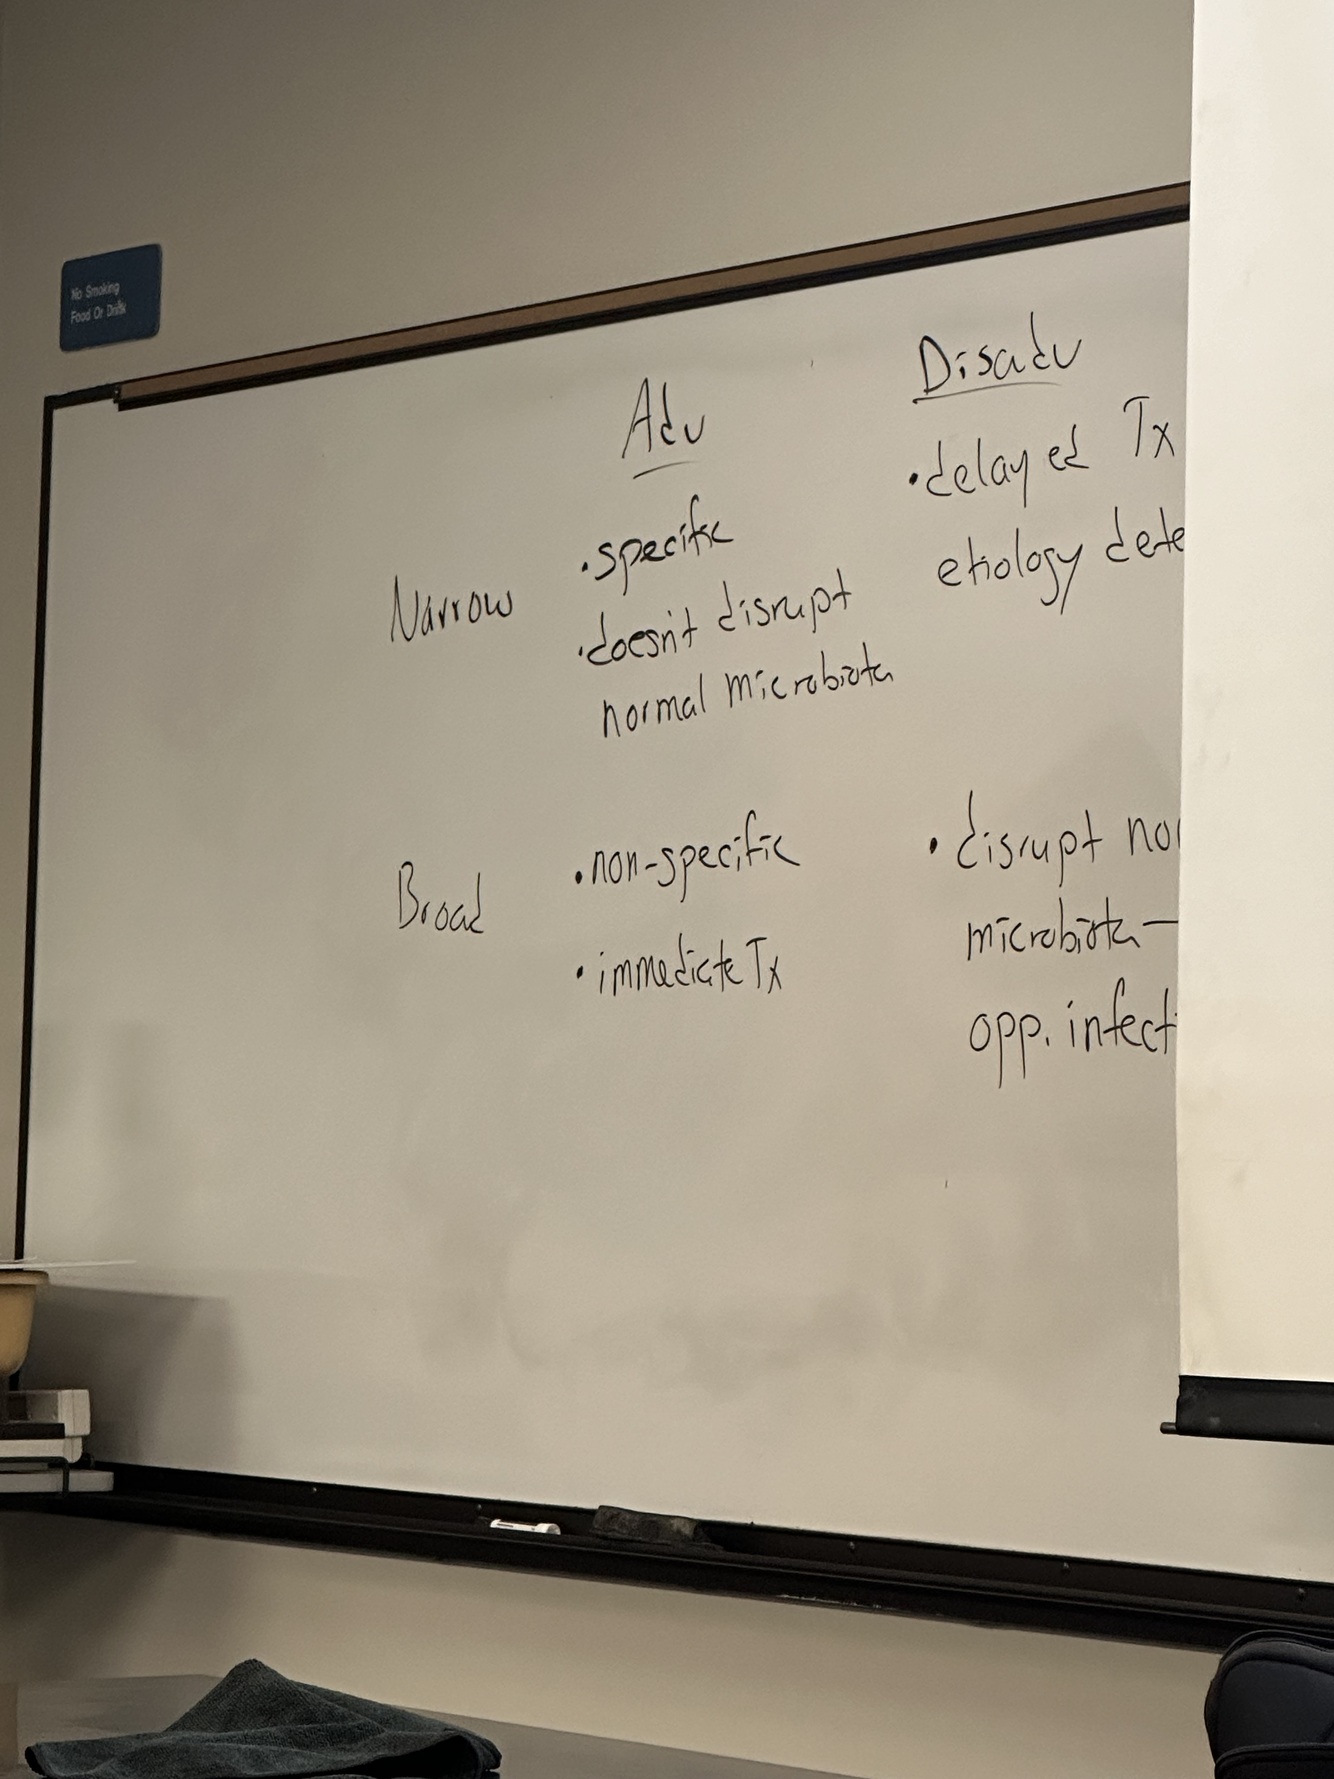 No Smoking
Food Or Drink
Adv
Disadv
Narrow
• specific
• doesn't disrupt
normal microbiota
• delayed Tx
etiology dete
Broad
• non-specific
• immediate Tx
• disrupt no
microbiota—
opp. infect